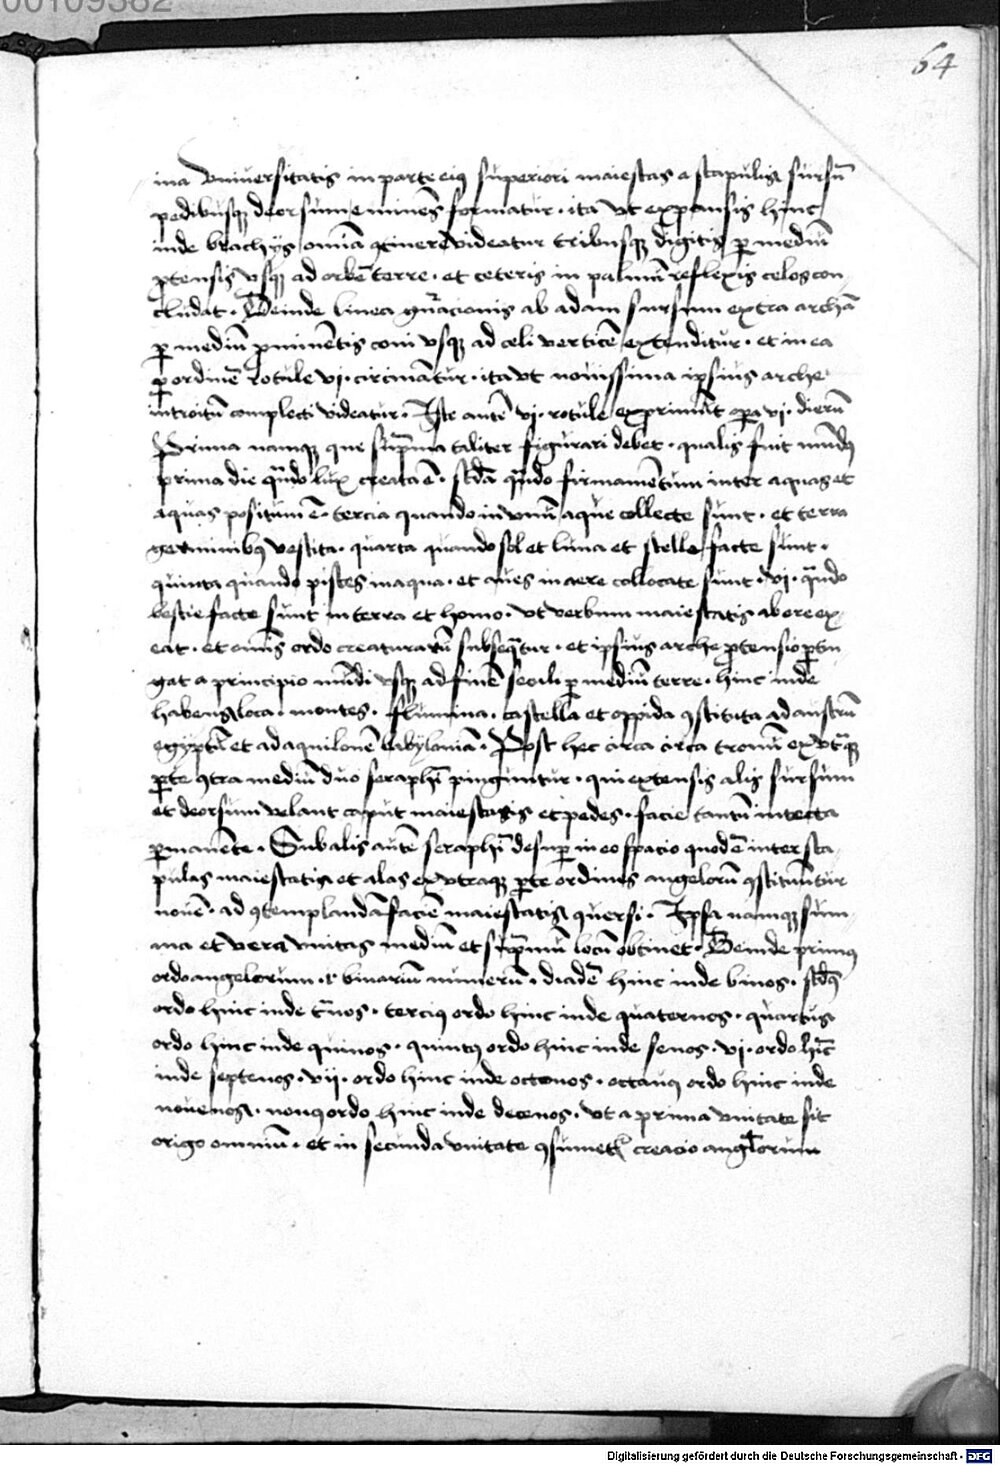 00109382
64
ina vniuersitatis in parte eiꝯ superiori maiestas a scapulis sursū
pedibusqꝫ deorsum eminēs formatur · ita vt expansis hinc
inde brachijs omīa ꝯtinere videatur tribusqꝫ digitis ꝑ mediū
ꝓtensis vsqꝫ ad orbē terre · et ceteris in palmā reflexis celos con
cludat · Deinde linea gn̄acionis ab adam sursum extra archā
ꝑ mediū ꝓminētis coni vsqꝫ ad celi verticē extenditur · et in ea
ꝑ ordinē rotule vj · circinātur · ita vt nouissima ipsius arche
introitū complecti videatur · Iste autē vj · rotule exprimūt oꝑa vj · dierū
Prima namqꝫ que sup̄ma taliter figurari debet · qualis fuit mūdꝯ
prima die qn̄do lux creata ē · scd̄a qn̄do firmamētum inter aquas et
aquas positum ē · tercia quando in vnū aque collecte sunt · et terra
germinibꝯ vestita · quarta quando sol et luna et stelle facte sunt ·
quinta quando pisces in aqua · et aues in aere collocate sunt · vj · qn̄do
bestie facte sunt in terra et homo · vt verbum maiestatis ab ore ex
eat · et om̄is ordo creaturarū subseq̄tur · et ipsius arche ꝓtensio ꝑtin
gat a principio mūdi vsqꝫ ad finē seculi ꝑ mediū terre · hinc inde
habens loca · montes · flumina · castella et oppida ꝯstituta ad austrū
egyptū et ad aquilonē babyloniā · Post hec circa circa tronū ex vtᵃqꝫ
ꝑte ꝯtra mediū duo seraphī pinguntur · qui extensis alis sursum
et deorsum velant caput maiestatis et pedes · facie tantū intecta
ꝑmanēte · Sub alis autē seraphī desuꝑ in eo spacio quod ē inter sca
pulas maiestatis et alas ex vtraqꝫ ꝑte ordines angelorū ꝯstituūtur
nouē · ad ꝯtemplandā faciē maiestatis quersi · Ipsa namqꝫ sum
ma et vera vnitas mediū et sup̄mū locū obtinet · Deinde primꝯ
ordo angelorum · binariū numerū · diadē hinc inde binos · scd̄s
ordo hinc inde t̄nos · tercius ordo hinc inde quaternos · quartus
ordo hinc inde quinos · quintꝯ ordo hinc inde senos · vj · ordo hīc
inde septenos · vii · ordo hinc inde octonos · octauꝯ ordo hinc inde
nouenos · nonꝯ ordo hinc inde decenos · vt a prima vnitate sit
origo omniū · et in secunda vnitate ꝯsumetr̄ creacio angelorum
Digitalisierung gefördert durch die Deutsche Forschungsgemeinschaft - DFG